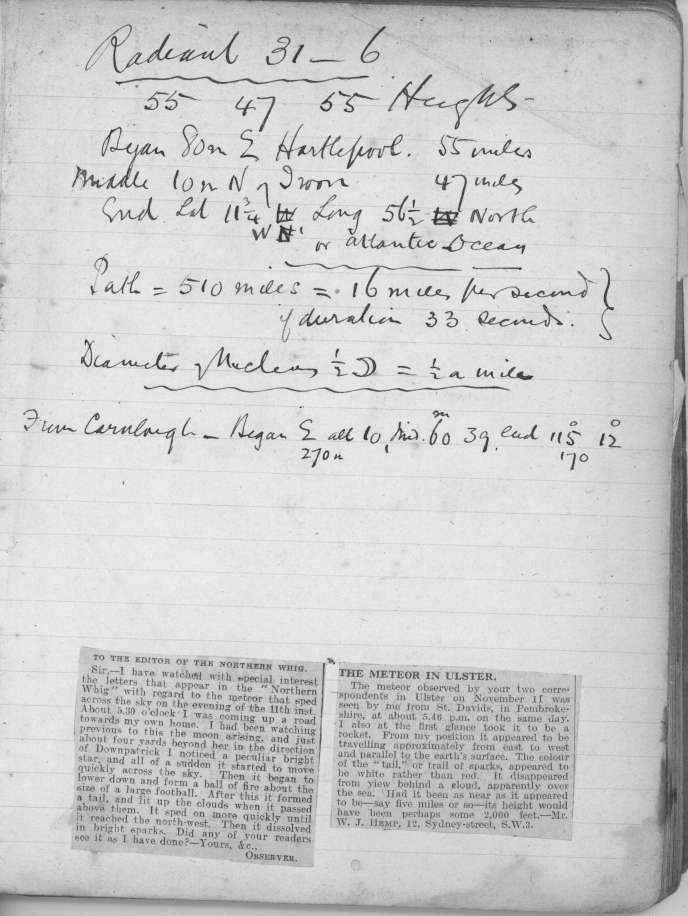 Radiant 31 – 6
55 47 55 Heights
Began 80m E Hartlepool. 55 miles
Middle 10m N of Troon 47 miles
End Lat 11 3/4 W Long 56 1/2 W North
W N
or Atlantic Ocean
Path = 510 miles = 16 miles per second
if duration 33 seconds.
Diameter of Nucleus 1/2 = 1/2 a mile
From Carnlough – Began E alt 10, mid. 60 39 end 115° 12°
270m 170
TO THE EDITOR OF THE NORTHERN WHIG.
Sir,—I have watched with special interest
the letters that appear in the "Northern
Whig" with regard to the meteor that sped
across the sky on the evening of the 11th inst.
About 5.30 o'clock I was coming up a road
towards my own home. I had been watching
previous to this the moon arising, and just
about four yards beyond her in the direction
of Downpatrick I noticed a peculiar bright
star, and all of a sudden it started to move
quickly across the sky. Then it began to
lower down and form a ball of fire about the
size of a large football. After this it formed
a tail, and lit up the clouds when it passed
above them. It sped on more quickly until
it reached the north-west. Then it dissolved
in bright sparks. Did any of your readers
see it as I have done?—Yours, &c.,
OBSERVER.
THE METEOR IN ULSTER.
The meteor observed by your two corre-
spondents in Ulster on November 11 was
seen by me from St. Davids, in Pembroke-
shire, at about 5.46 p.m. on the same day.
I also at the first glance took it to be a
rocket. From my position it appeared to be
travelling approximately from east to west
and parallel to the earth's surface. The colour
of the "tail," or trail of sparks, appeared to
be white rather than red. It disappeared
from view behind a cloud, apparently over
the sea. Had it been as near as it appeared
to be—say five miles or so—its height would
have been perhaps some 2,000 feet.—Mr.
W. J. HEMP, 12, Sydney-street, S.W.3.